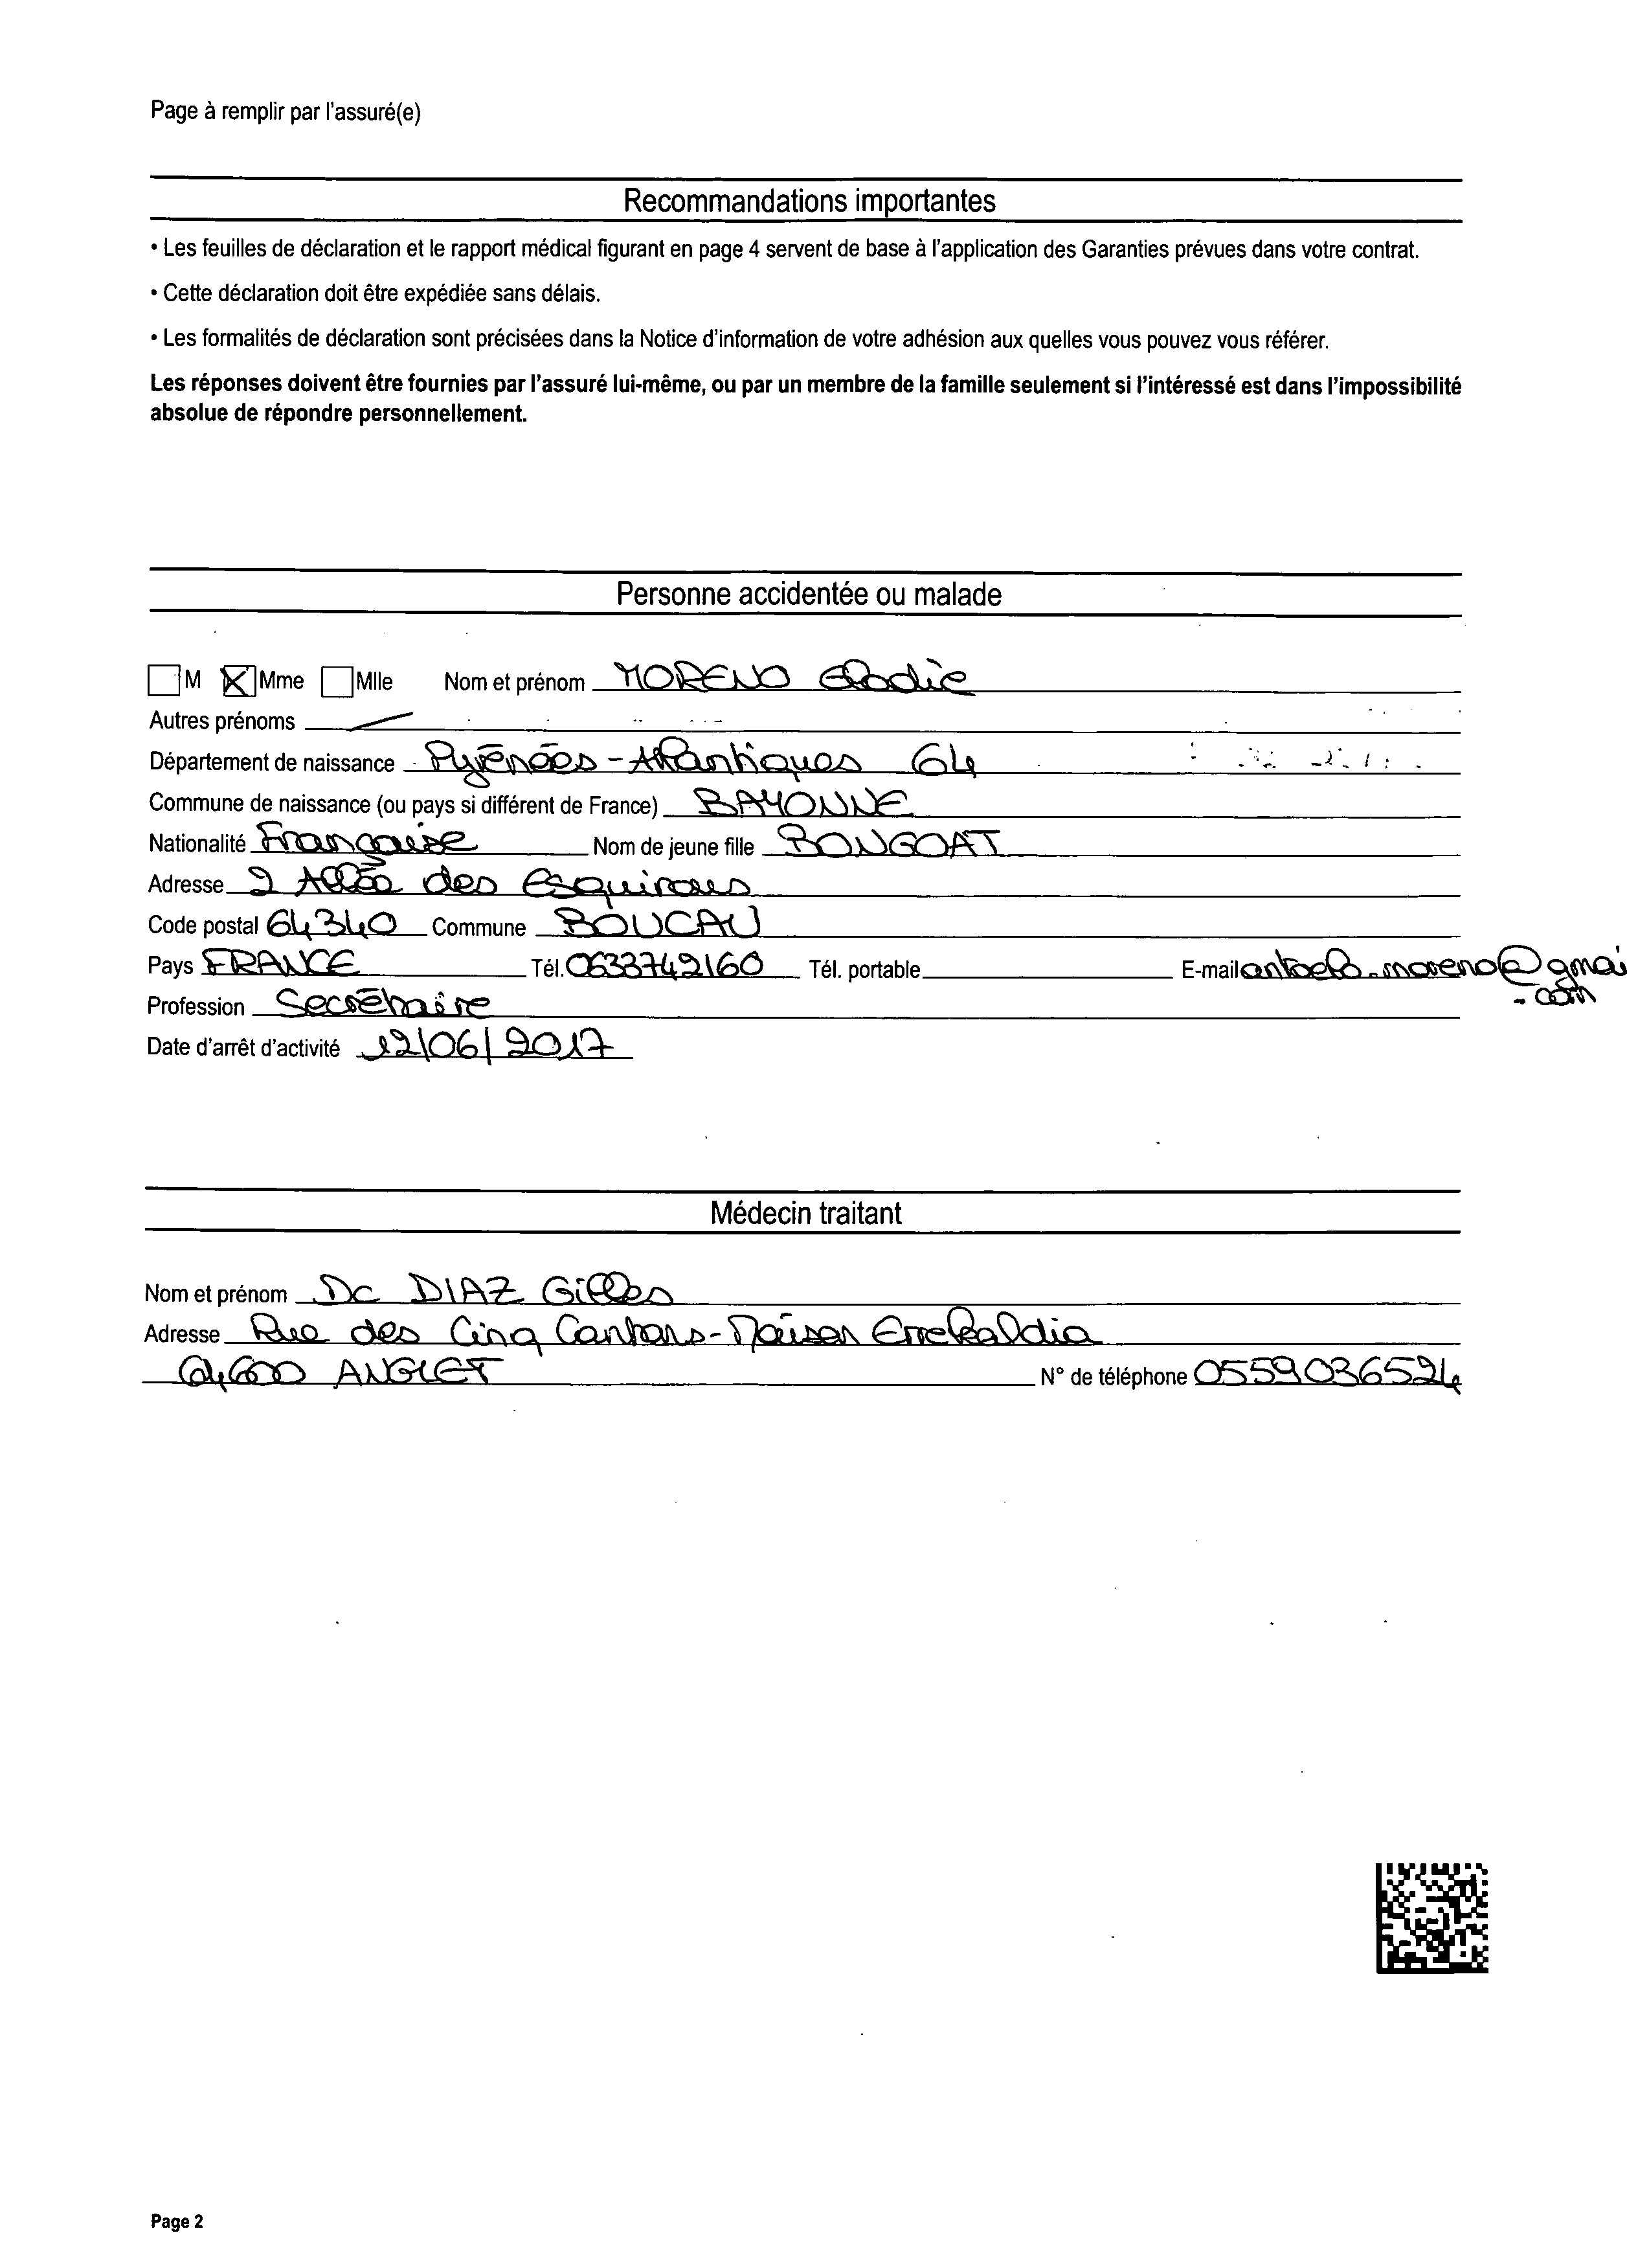 Page à remplir par l'assuré(e)
Recommandations importantes
• Les feuilles de déclaration et le rapport médical figurant en page 4 servent de base à l'application des Garanties prévues dans votre contrat.
• Cette déclaration doit être expédiée sans délais.
• Les formalités de déclaration sont précisées dans la Notice d'information de votre adhésion aux quelles vous pouvez vous référer.
Les réponses doivent être fournies par l'assuré lui-même, ou par un membre de la famille seulement si l'intéressé est dans l'impossibilité
absolue de répondre personnellement.
Personne accidentée ou malade
M Mme Mlle Nom et prénom MORENO Elodie
Autres prénoms
Département de naissance Pyrénées-Atlantiques 64
Commune de naissance (ou pays si différent de France) BAYONNE
Nationalité Française Nom de jeune fille BONGOAT
Adresse 2 Allée des Esquirous
Code postal 64340 Commune BOUCAU
Pays FRANCE Tél. 0633742160 Tél. portable E-mail antoelo.moreno@gmai
.com
Profession Secrétaire
Date d'arrêt d'activité 12/06/2017
Médecin traitant
Nom et prénom Dc DIAZ Gilles
Adresse Rue des Cinq Cantons-Maison Errekaldia
64600 ANGLET N° de téléphone 0559036524
Page 2